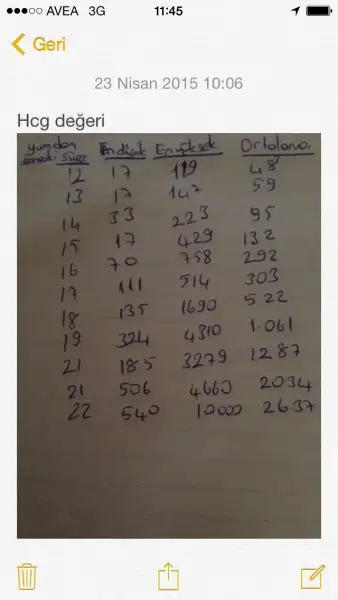 AVEA 3G 11:45
Geri
23 Nisan 2015 10:06
Hcg değeri
yumdan En düşük En yüksek Ortalama
Süre
12 17 119 48
13 17 147 59
14 33 223 95
15 17 429 132
16 70 758 292
17 111 514 303
18 135 1690 522
19 324 4310 1.061
21 185 3279 1287
21 506 4660 2034
22 540 10000 2637